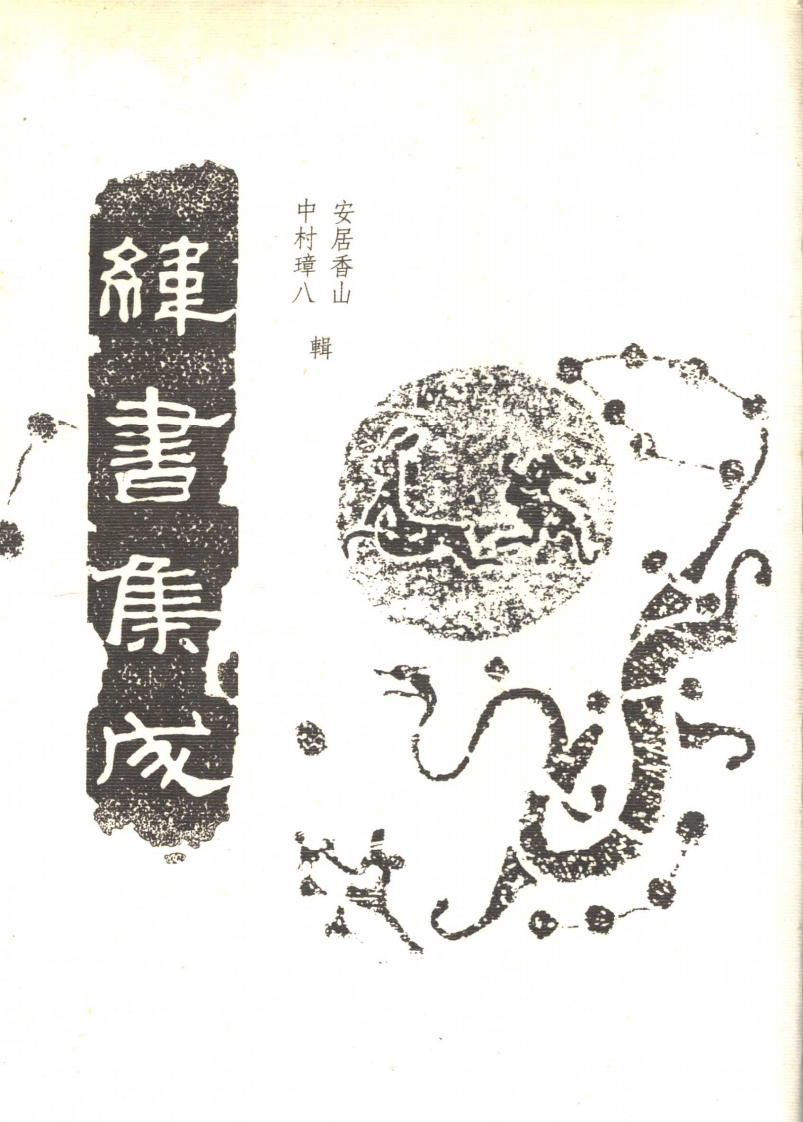 安居香山
中村璋八
輯
緯書集成